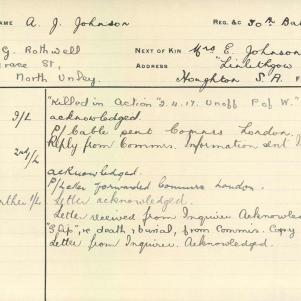 NAME A. J. Johnson REG. &C 50th Bat
G. Rothwell NEXT OF KIN Mrs E. Johnson
St, ADDRESS "Linlithgow
North Unley. Houghton S.A.
"Killed in Action" 2.4.17. Unoff P of W."
1/L acknowledged.
P/ Cable sent Comnrs London.
Reply from Commrs. Information sent
2nd/L
acknowledged.
P/ Letter forwarded Commrs London.
rther 1/L Letter acknowledged.
Letter received from Inquirer Acknowled
re death & burial, from Commrs. Copy
Letter from Inquirer. Acknowledged.